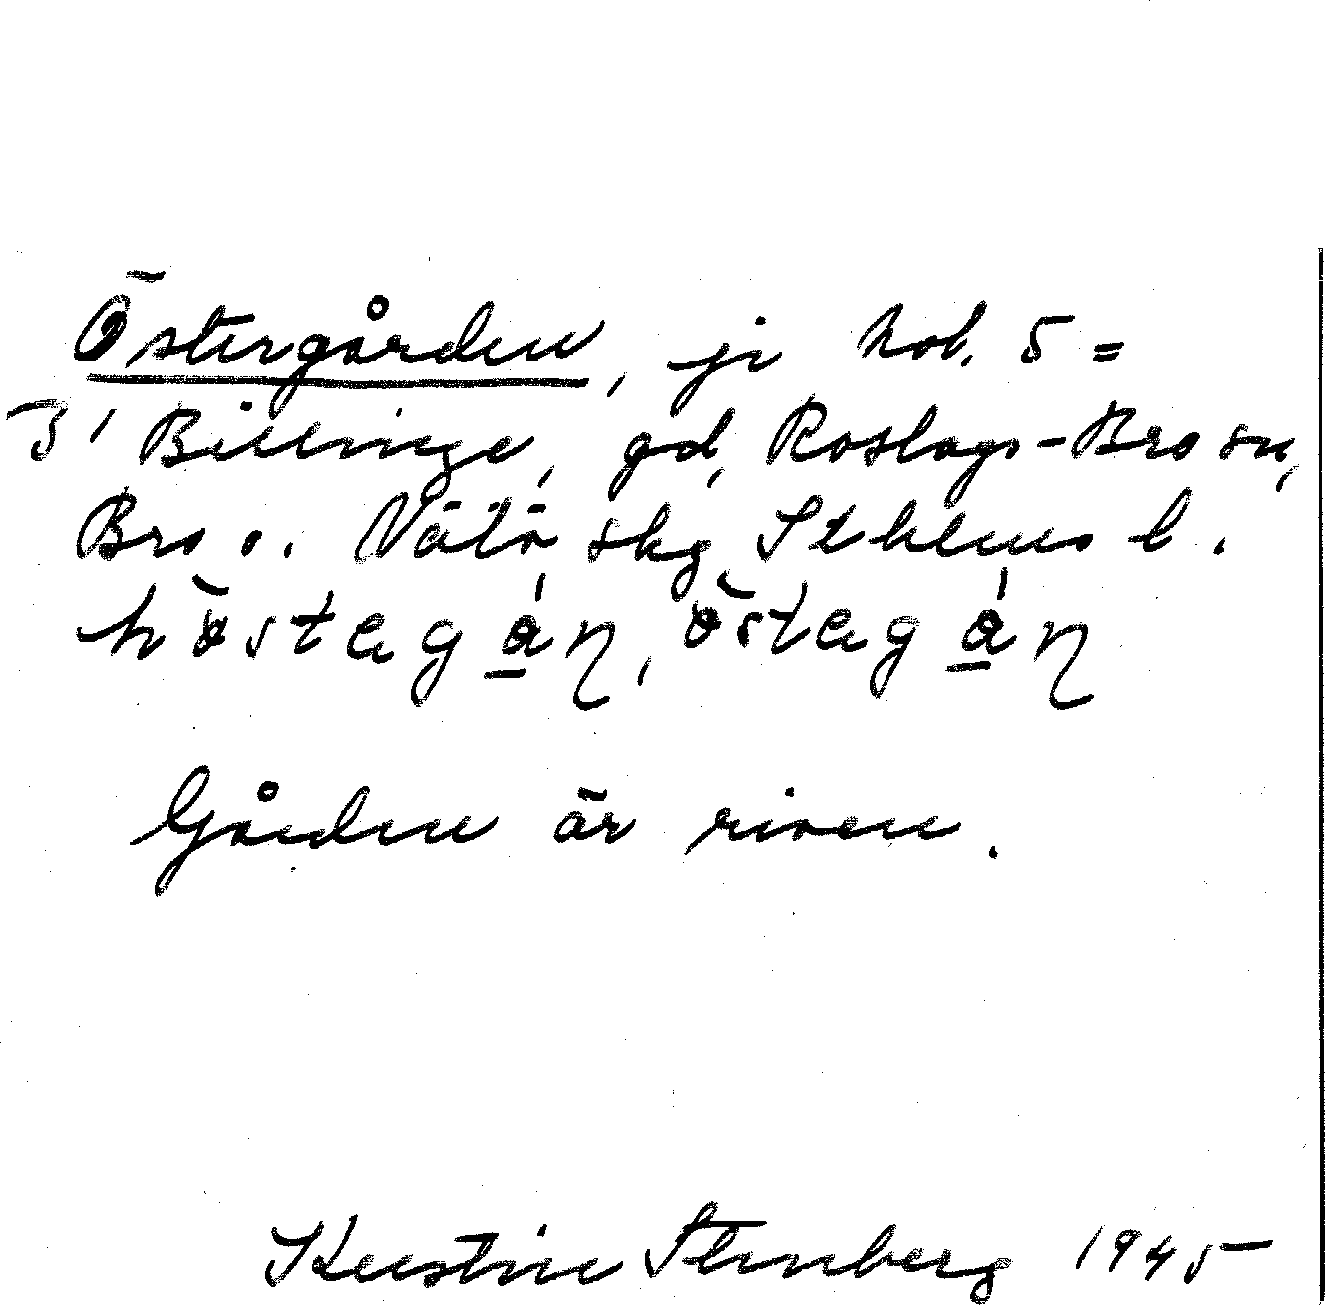 Östergården, ji kob. 5 =
3' Billinge, gd, Roslags-Bro sn,
Bro o. Vätö skg Sthlms l.
höstagán, östagán
Gården är riven.
Kerstin Stenberg 1945